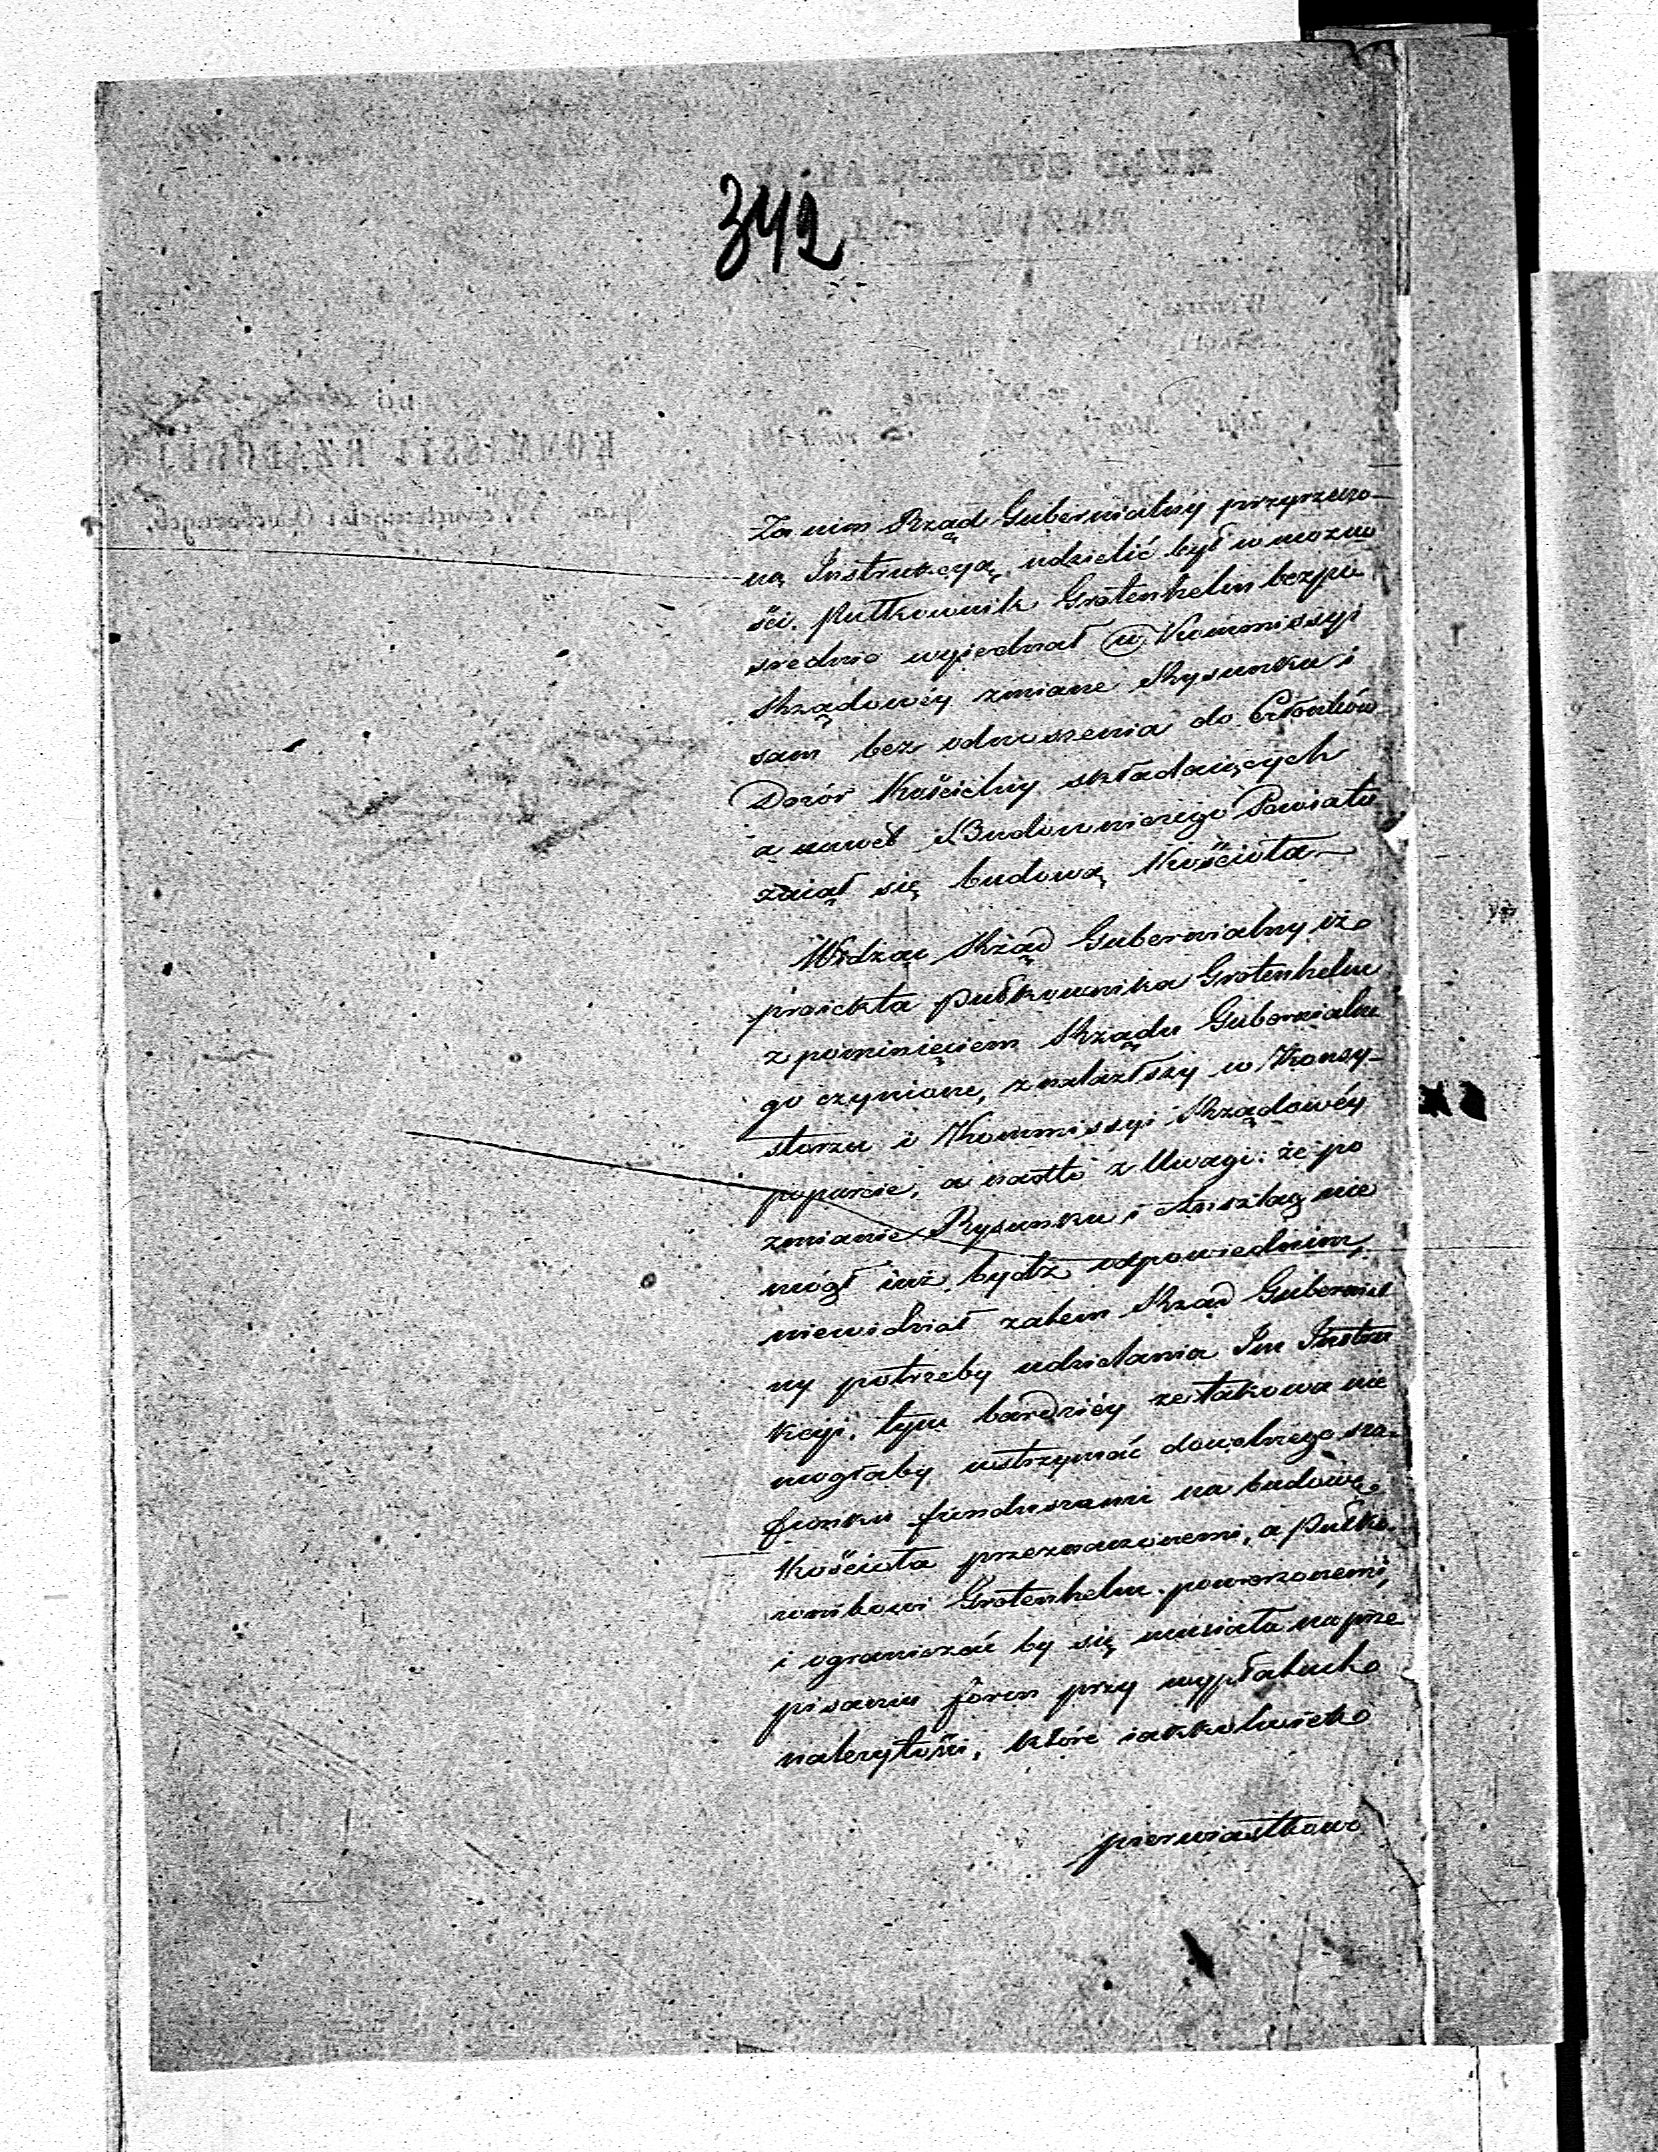 342
Za nim Rząd Gubernialny przyrzeczo-
ną Instrukcyą udzielić był w możno
ści. Pułkownik Grotenhelm bezpo
srednio wyiednał w Kommissyi
Rządowéy zmianę Rysunku i
sam bez odnoszenia do Członków
Dozór Kościelny składaiących
a nawet i Budowniczego Powiatu
zaiął się budową Kościoła —
Widząc Rząd Gubernialny iż
proiekta Pułkownika Grotenhelm
z pominięciem Rządu Gubernialne
go czynione, znalazłszy w Konsy-
storzu i Kommissyi Rządowéy
poparcie, a nadto z Uwagi: że po
zmianie Rysunku i Anszlag nie
mógł iuż bydź odpowiednim,
niewidział zatem Rząd Gubernial
ny potrzeby udzielania Im Instru
kcyi, tym bardziéy że takowa nie
mogłaby wstrzymać dowolnego sza-
funku funduszami na budowę
Kościoła przeznaczonemi, a Pułko-
wnikowi Grotenhelm powierzonemi,
i ograniczać by się musiała na prze
pisaniu form przy wypłatach
należytości, które iakkolwiek
pierwiastkowo